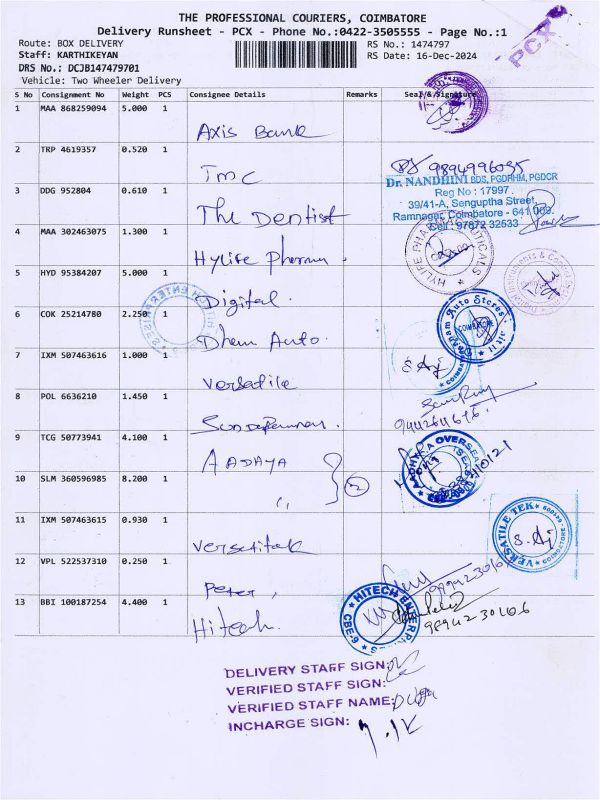 THE PROFESSIONAL COURIERS, COIMBATORE
Delivery Runsheet - PCX - Phone No.:0422-3505555 - Page No.:1
PCX
Route: BOX DELIVERY RS No.: 1474797
Staff: KARTHIKEYAN RS Date: 16-Dec-2024
DRS No.: DCJB147479701
Vehicle: Two Wheeler Delivery
S No Consignment No Weight PCS Consignee Details Remarks Seal & Signature
1 MAA 868259094 5.000 1 Axis Bank
2 TRP 4619357 0.520 1 TMC 9894996035
3 DDG 952804 0.610 1 The Dentist
Dr. NANDHINI BDS, PGDRHM, PGDCR
Reg No : 17997
39/41-A, Senguptha Street,
Ramnagar, Coimbatore - 641 009.
Cell : 97872 32533
4 MAA 302463075 1.300 1 Hylife Pharma
HYLIFE PHARMACEUTICALS
5 HYD 95384207 5.000 1 Digital.
6 COK 25214780 2.250 1 Dhem Auto.
Auto Stores
COIMBATORE
7 IXM 507463616 1.000 1 Versatile
8 POL 6636210 1.450 1
9 TCG 50773941 4.100 1 AADHYA
AADHYA OVERSEAS
10 SLM 360596985 8.200 1 " 2
11 IXM 507463615 0.930 1
VERSATILE TEK
12 VPL 522537310 0.250 1 Peter,
13 BBI 100187254 4.400 1 Hitech.
HITECH ENTERPRISES
CBE-6
9894230106
DELIVERY STAFF SIGN:
VERIFIED STAFF SIGN:
VERIFIED STAFF NAME:
INCHARGE SIGN: